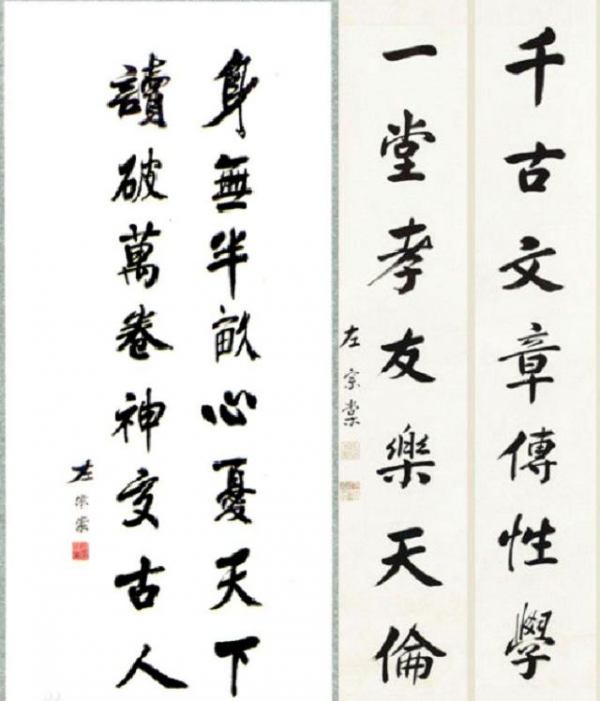 千古文章傳性學
一堂孝友樂天倫
左宗棠
身無半畝心憂天下
讀破萬卷神交古人
左宗棠